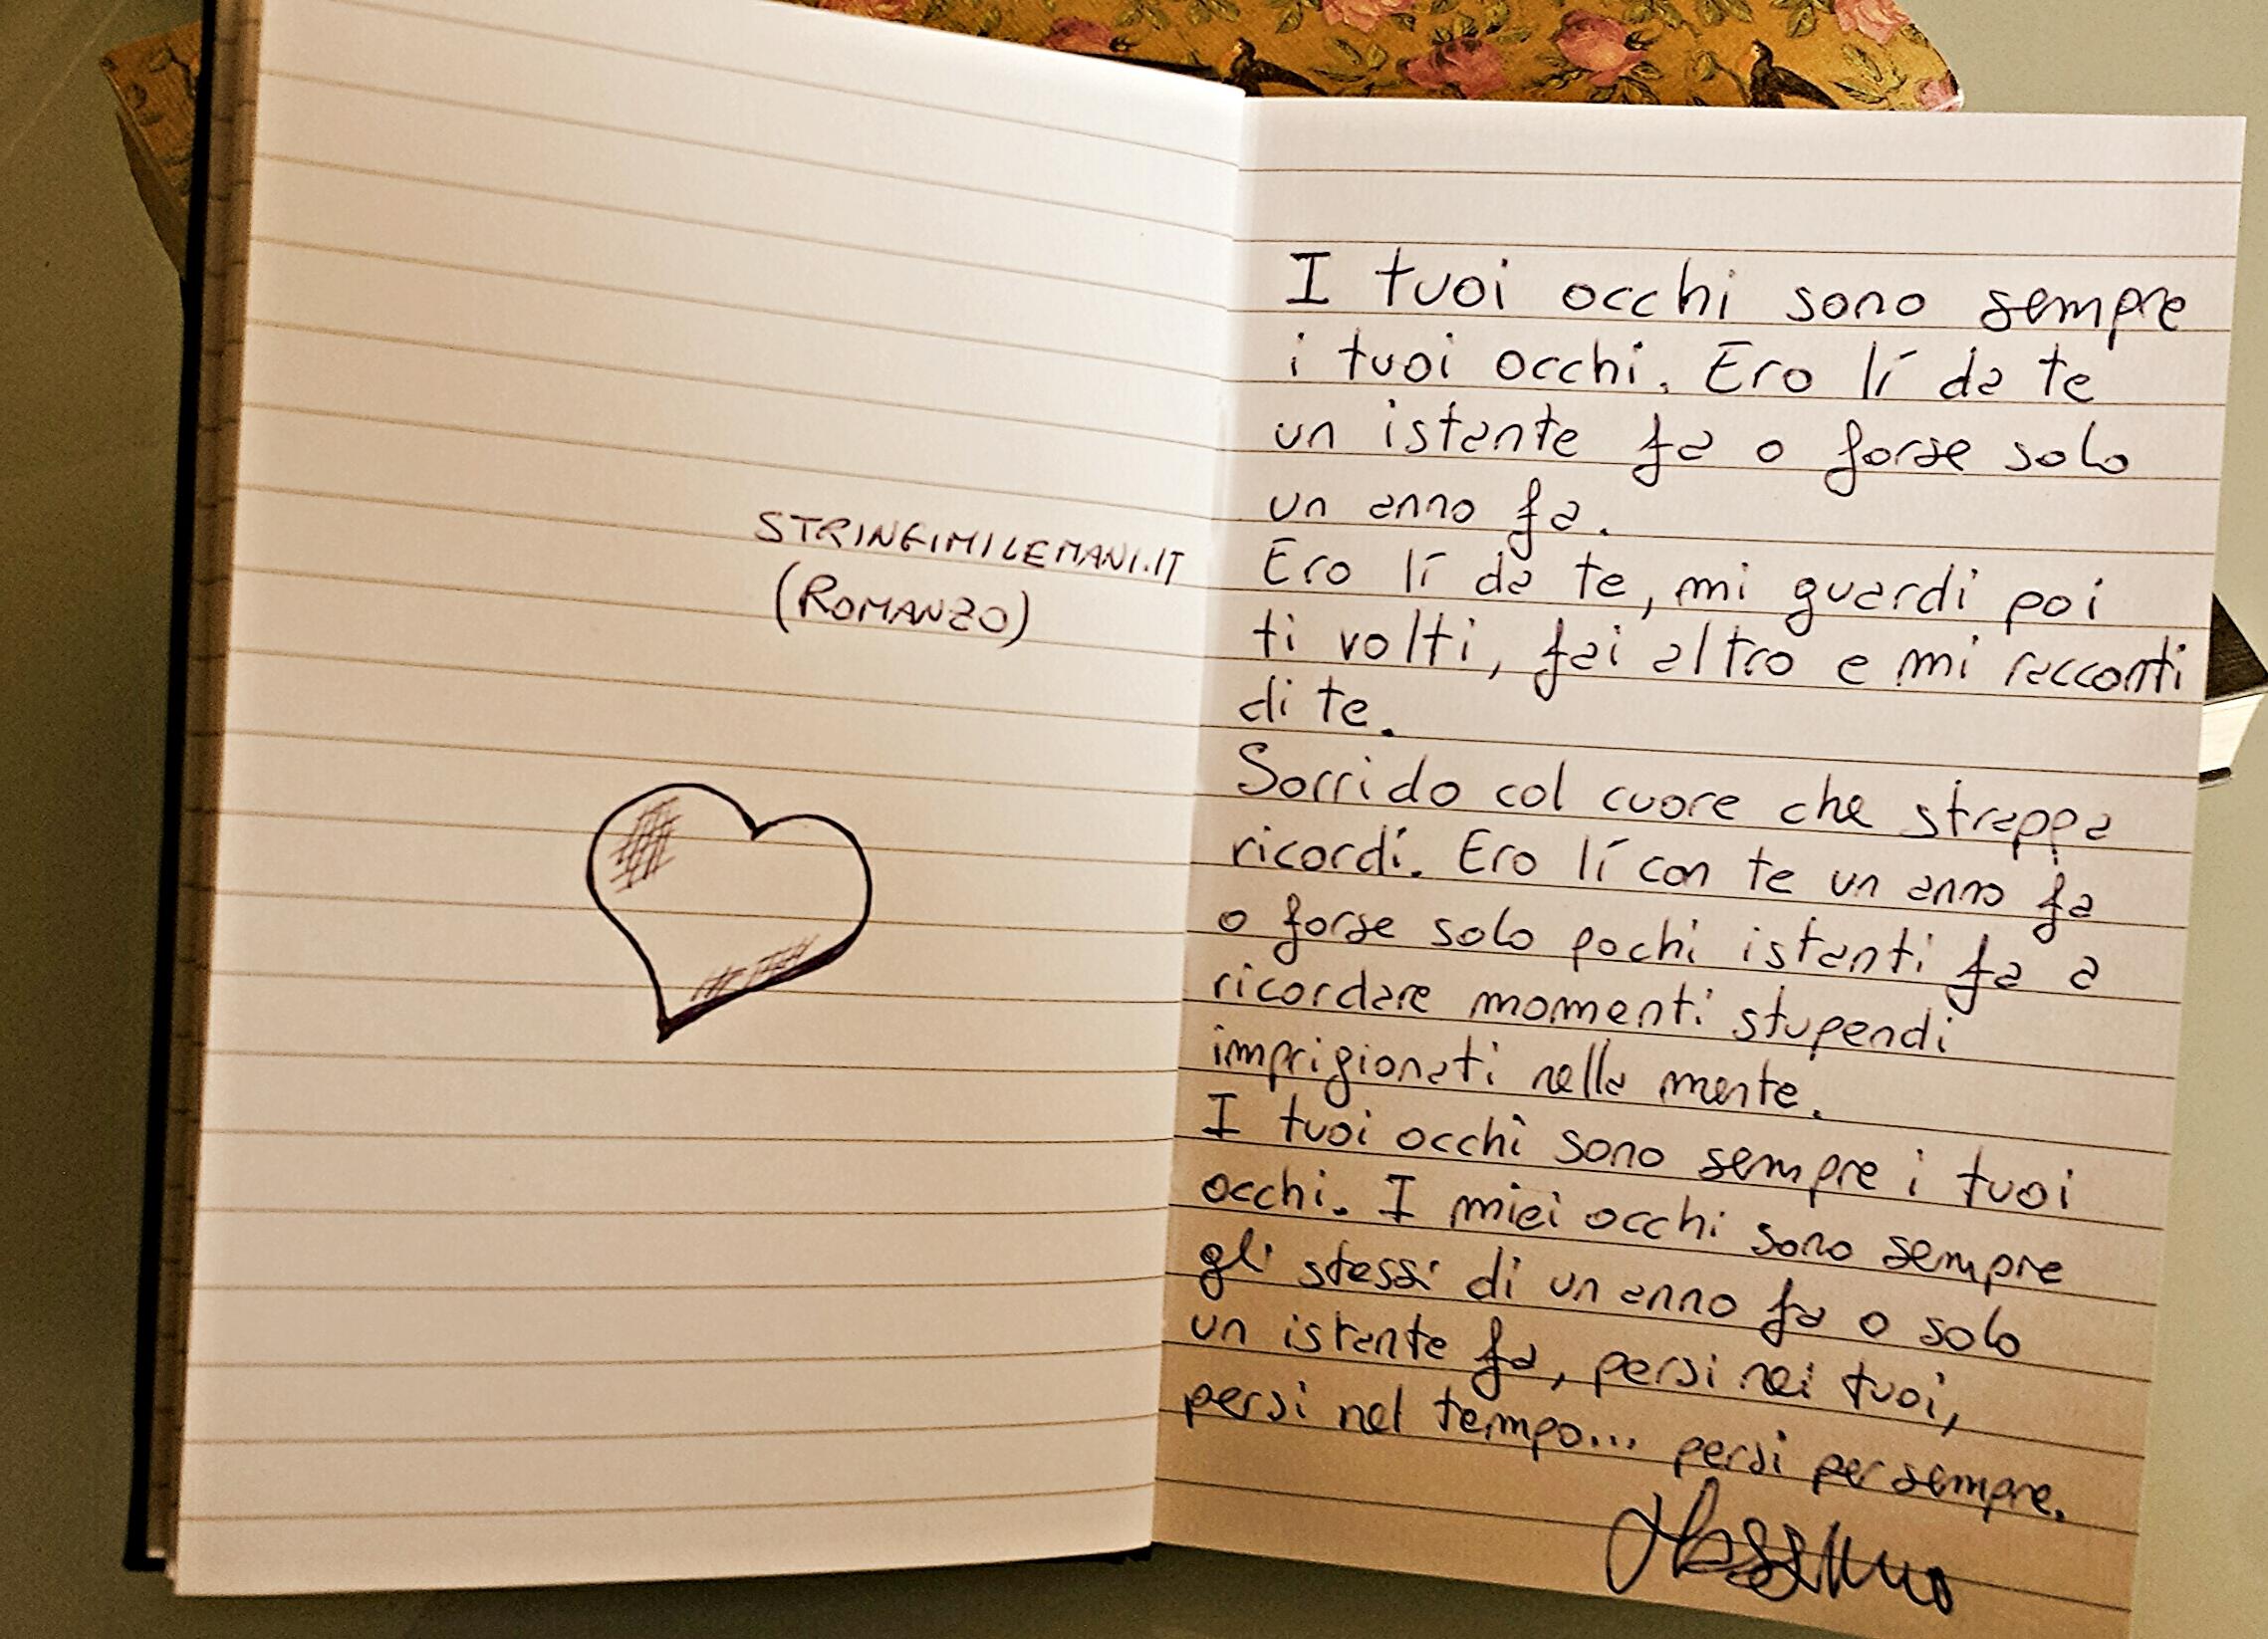 STRINGIMILEMANI.IT
(ROMANZO)
I tuoi occhi sono sempre
i tuoi occhi. Ero lí da te
un istante fa o forse solo
un anno fa.
Ero lí da te, mi guardi poi
ti volti, fai altro e mi racconti
di te.
Sorrido col cuore che strappa
ricordi. Ero lí con te un anno fa
o forse solo pochi istanti fa a
ricordare momenti stupendi
imprigionati nella mente.
I tuoi occhi sono sempre i tuoi
occhi. I miei occhi sono sempre
gli stessi di un anno fa o solo
un istante fa, persi nei tuoi,
persi nel tempo... persi per sempre.